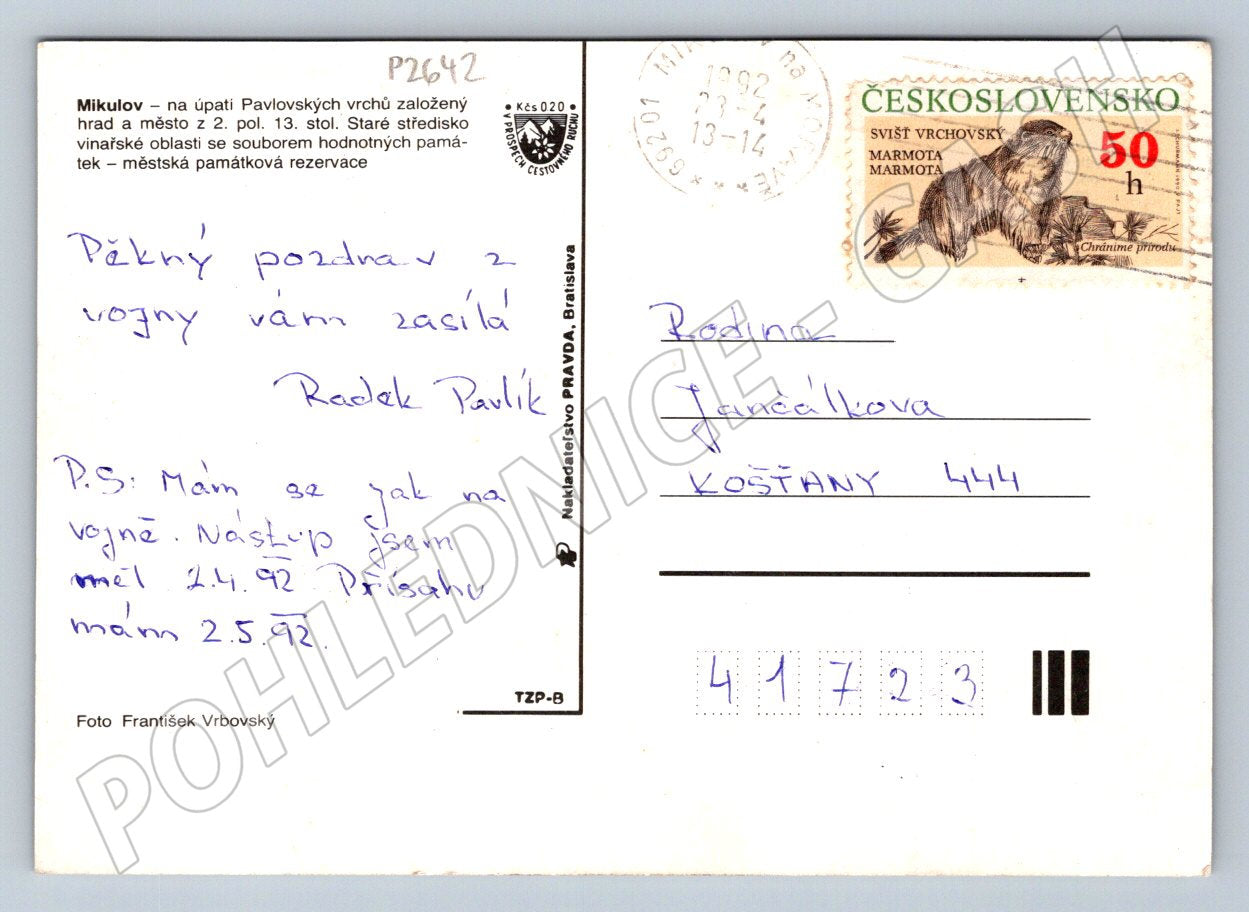 P2642
Mikulov – na úpatí Pavlovských vrchů založený
hrad a město z 2. pol. 13. stol. Staré středisko
vinařské oblasti se souborem hodnotných pamá-
tek – městská památková rezervace
• Kčs 020 •
V PROSPĚCH CESTOVNÉHO RUCHU
Pěkný pozdrav z
vojny vám zasílá
Radek Pavlík
P.S: Mám se jak na
vojně. Nástup jsem
měl 2.4.92 Přísahu
mám 2.5.92.
Foto František Vrbovský
TZP-B
Nakladateľstvo PRAVDA, Bratislava
69201 MIKULOV na MORAVĚ
1992
23-4
13-14
ČESKOSLOVENSKO
SVIŠŤ VRCHOVSKÝ
MARMOTA
MARMOTA
50
h
Chráníme přírodu
Rodina
Jančálkova
KOŠŤANY 444
41723
POHLEDNICE - CASH